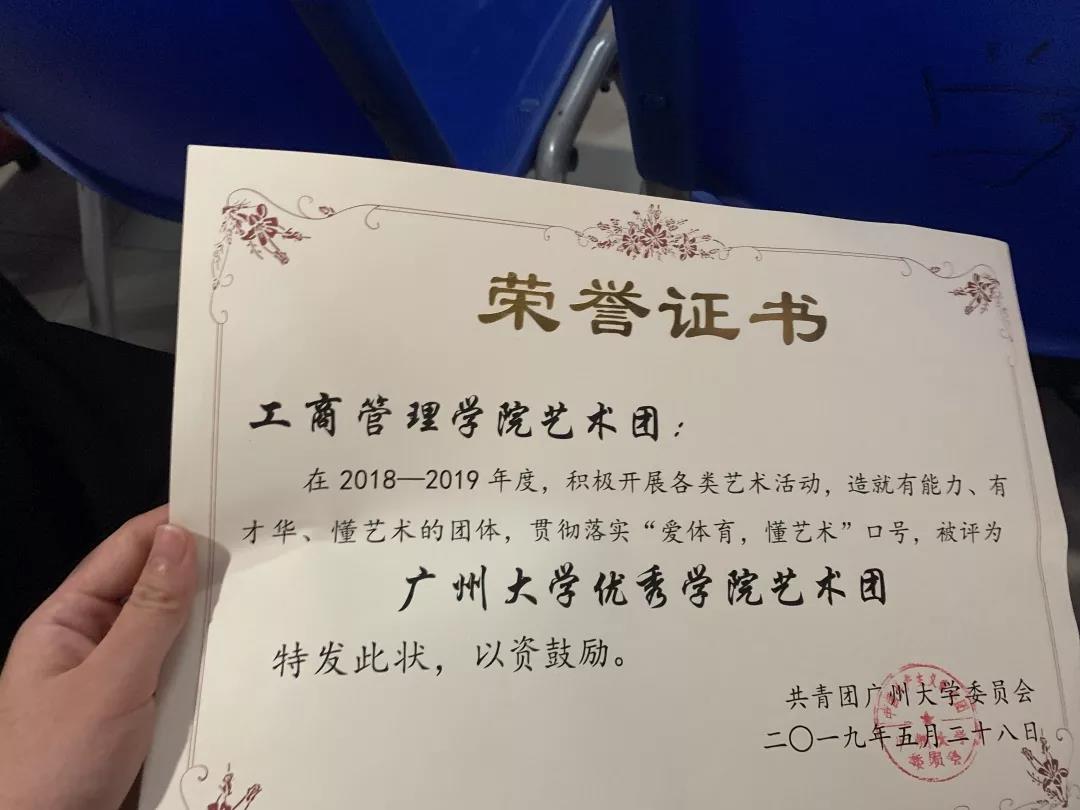 荣誉证书
工商管理学院艺术团：
在 2018—2019 年度，积极开展各类艺术活动，造就有能力、有
才华、懂艺术的团体，贯彻落实“爱体育，懂艺术”口号，被评为
广州大学优秀学院艺术团
特发此状，以资鼓励。
共青团广州大学委员会
二〇一九年五月二十八日
委员会